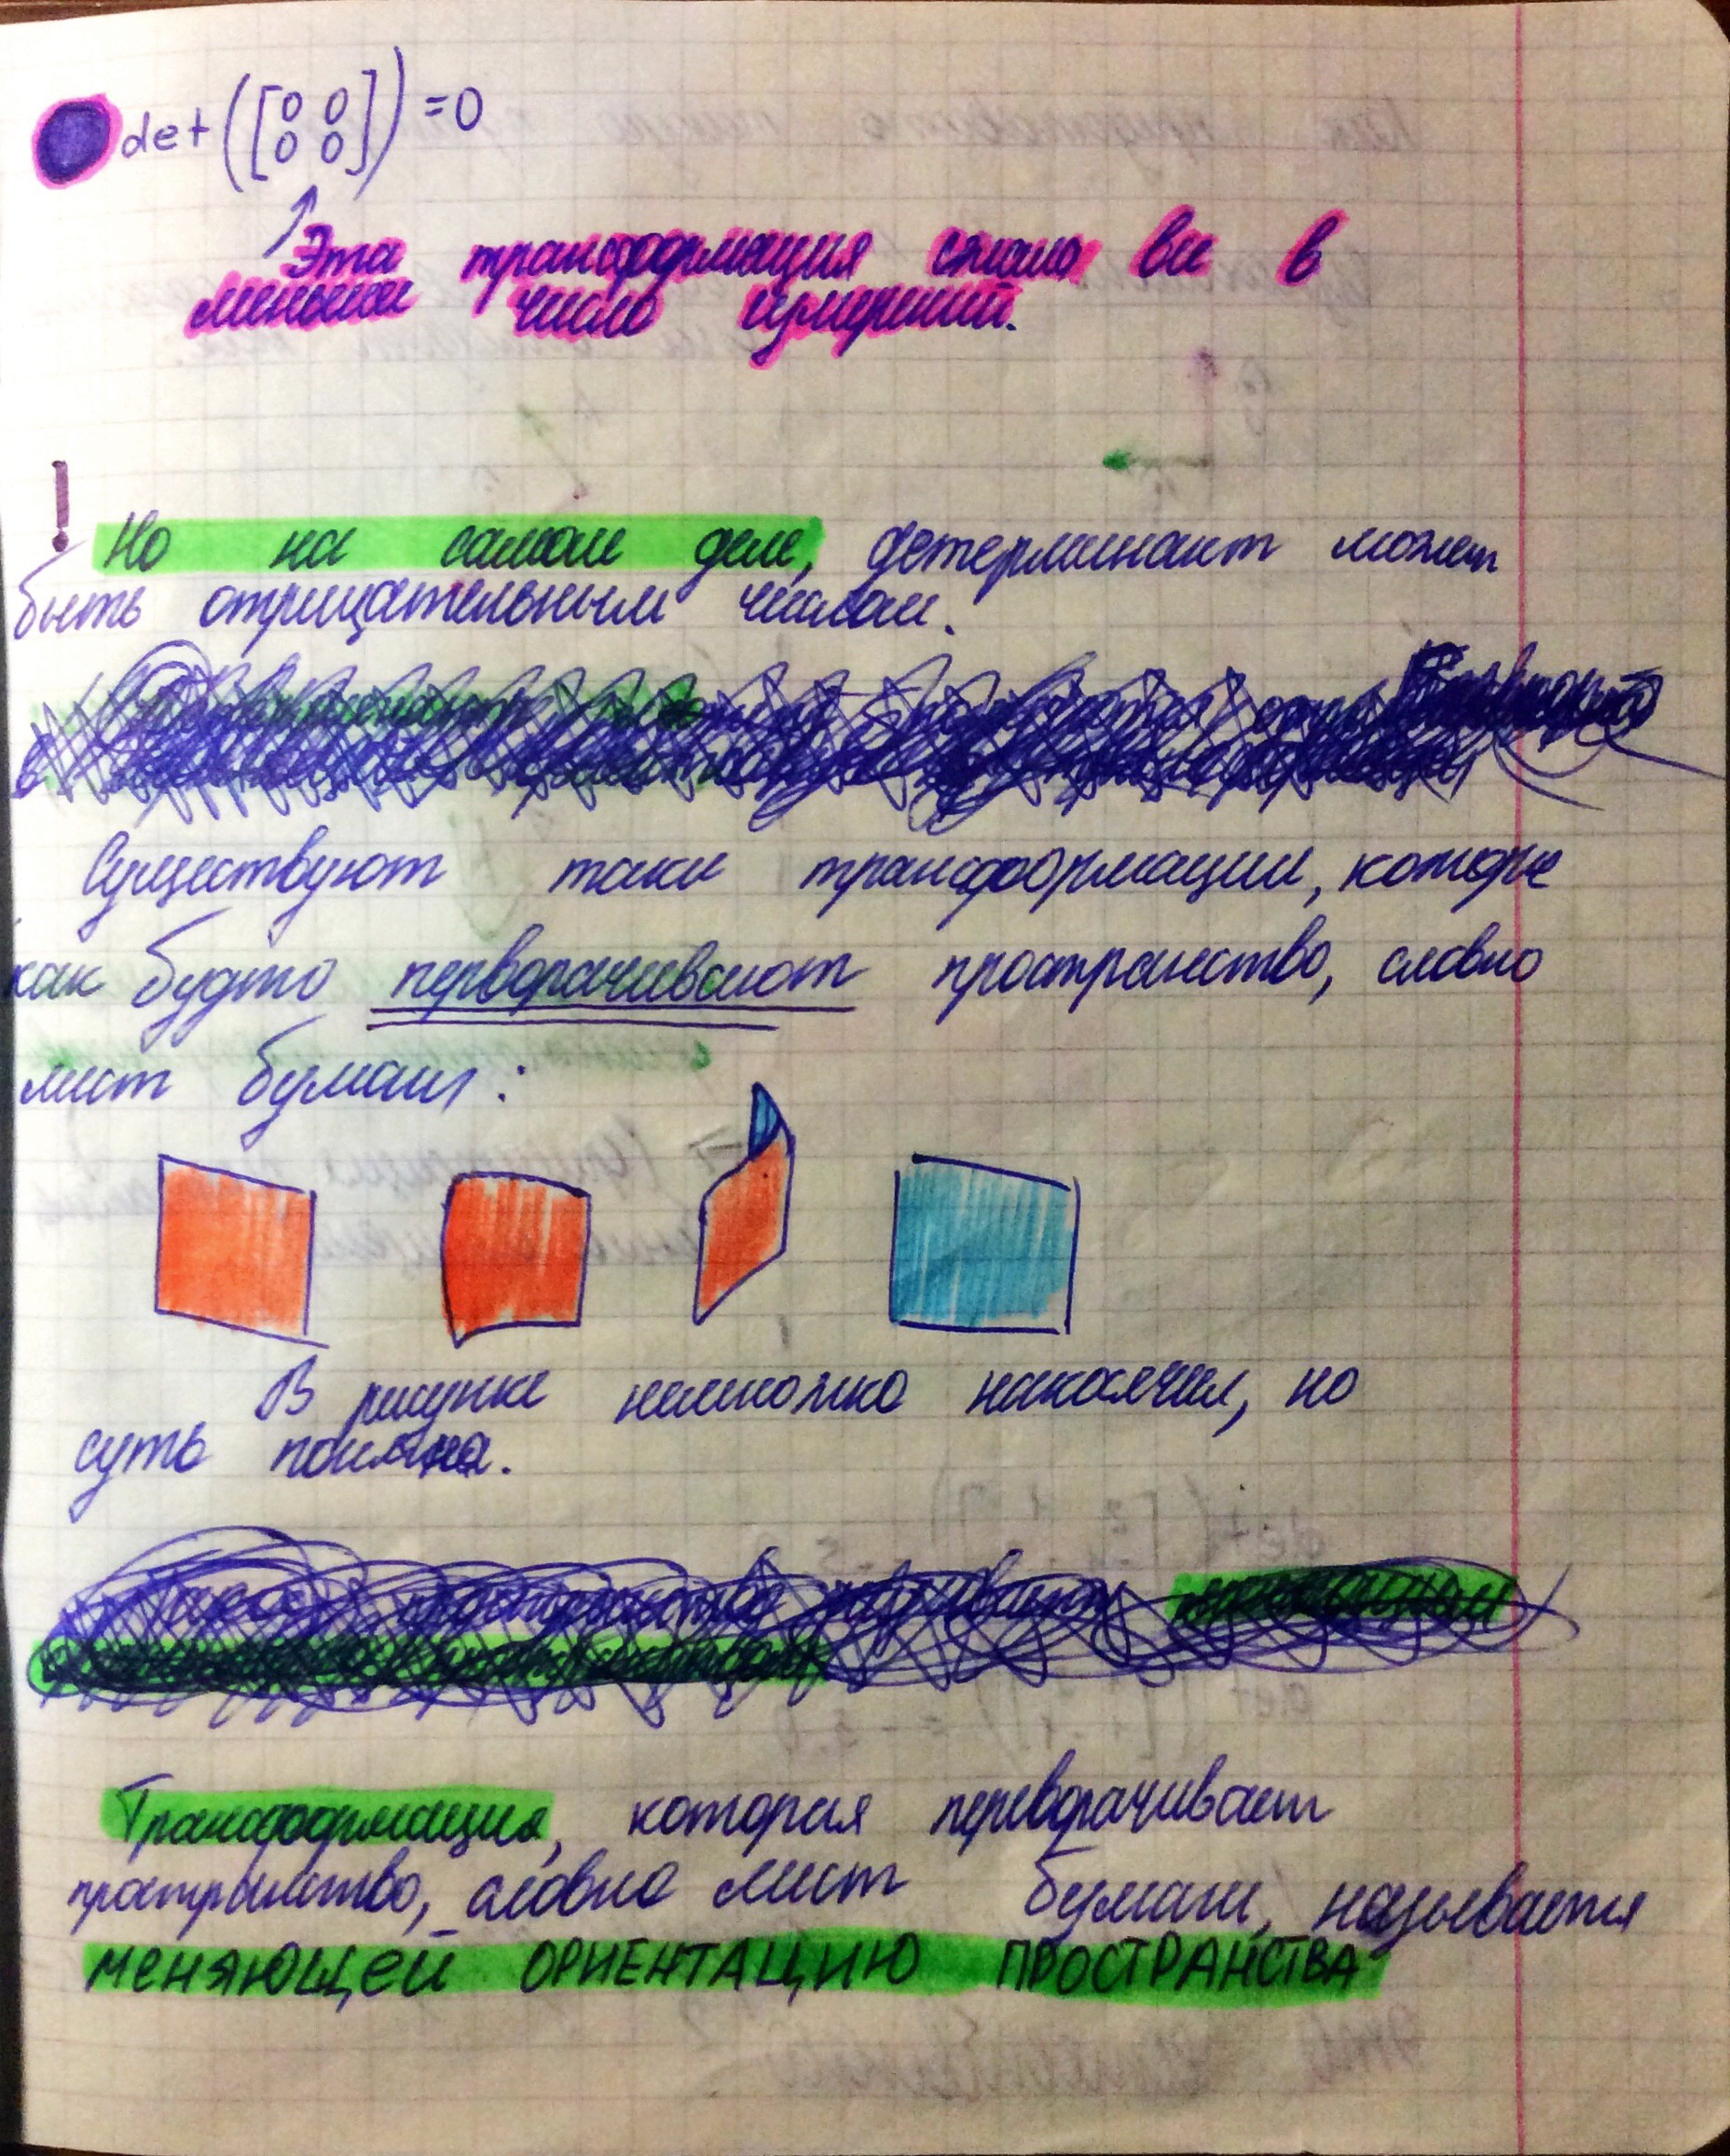 det([0 0
0 0]) = 0
Эта трансформация сжала все в
меньшее число измерений.
!
Но на самом деле, детерминант может
быть отрицательным числом.
Существуют такие трансформации, которые
как будто перворачивают пространство, словно
лист бумаги:
В рисунке немножко накосячил, но
суть понятна.
Трансформация, которая переворачивает
пространство, словно лист бумаги, называется
МЕНЯЮЩЕЙ ОРИЕНТАЦИЮ ПРОСТРАНСТВА